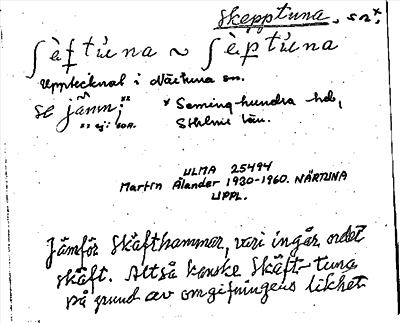 Skepptuna, sn*,
ʃὲftùna ~ ʃὲptùna
Upptecknat i Närtuna sn.
se jämn;**
* Seminghundra hd,
** ej: son.
Sthlms län.
ULMA 25494
Martin Ålander 1930-1960. NÄRTUNA
UPPL.
Jämför Skäfthammar, vari ingår ordet
skäft. Alltså kanske Skäft-tuna
på grund av omgifningens likhet